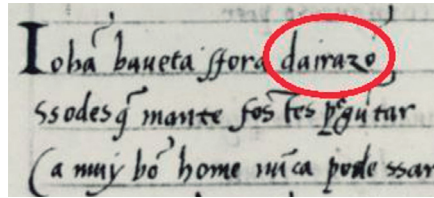 Iohã baueta ssora dairazõ
ssodes q̃ mante fos tẽs pᵉgũtar
Ca muy bõ home nũca pode ssar